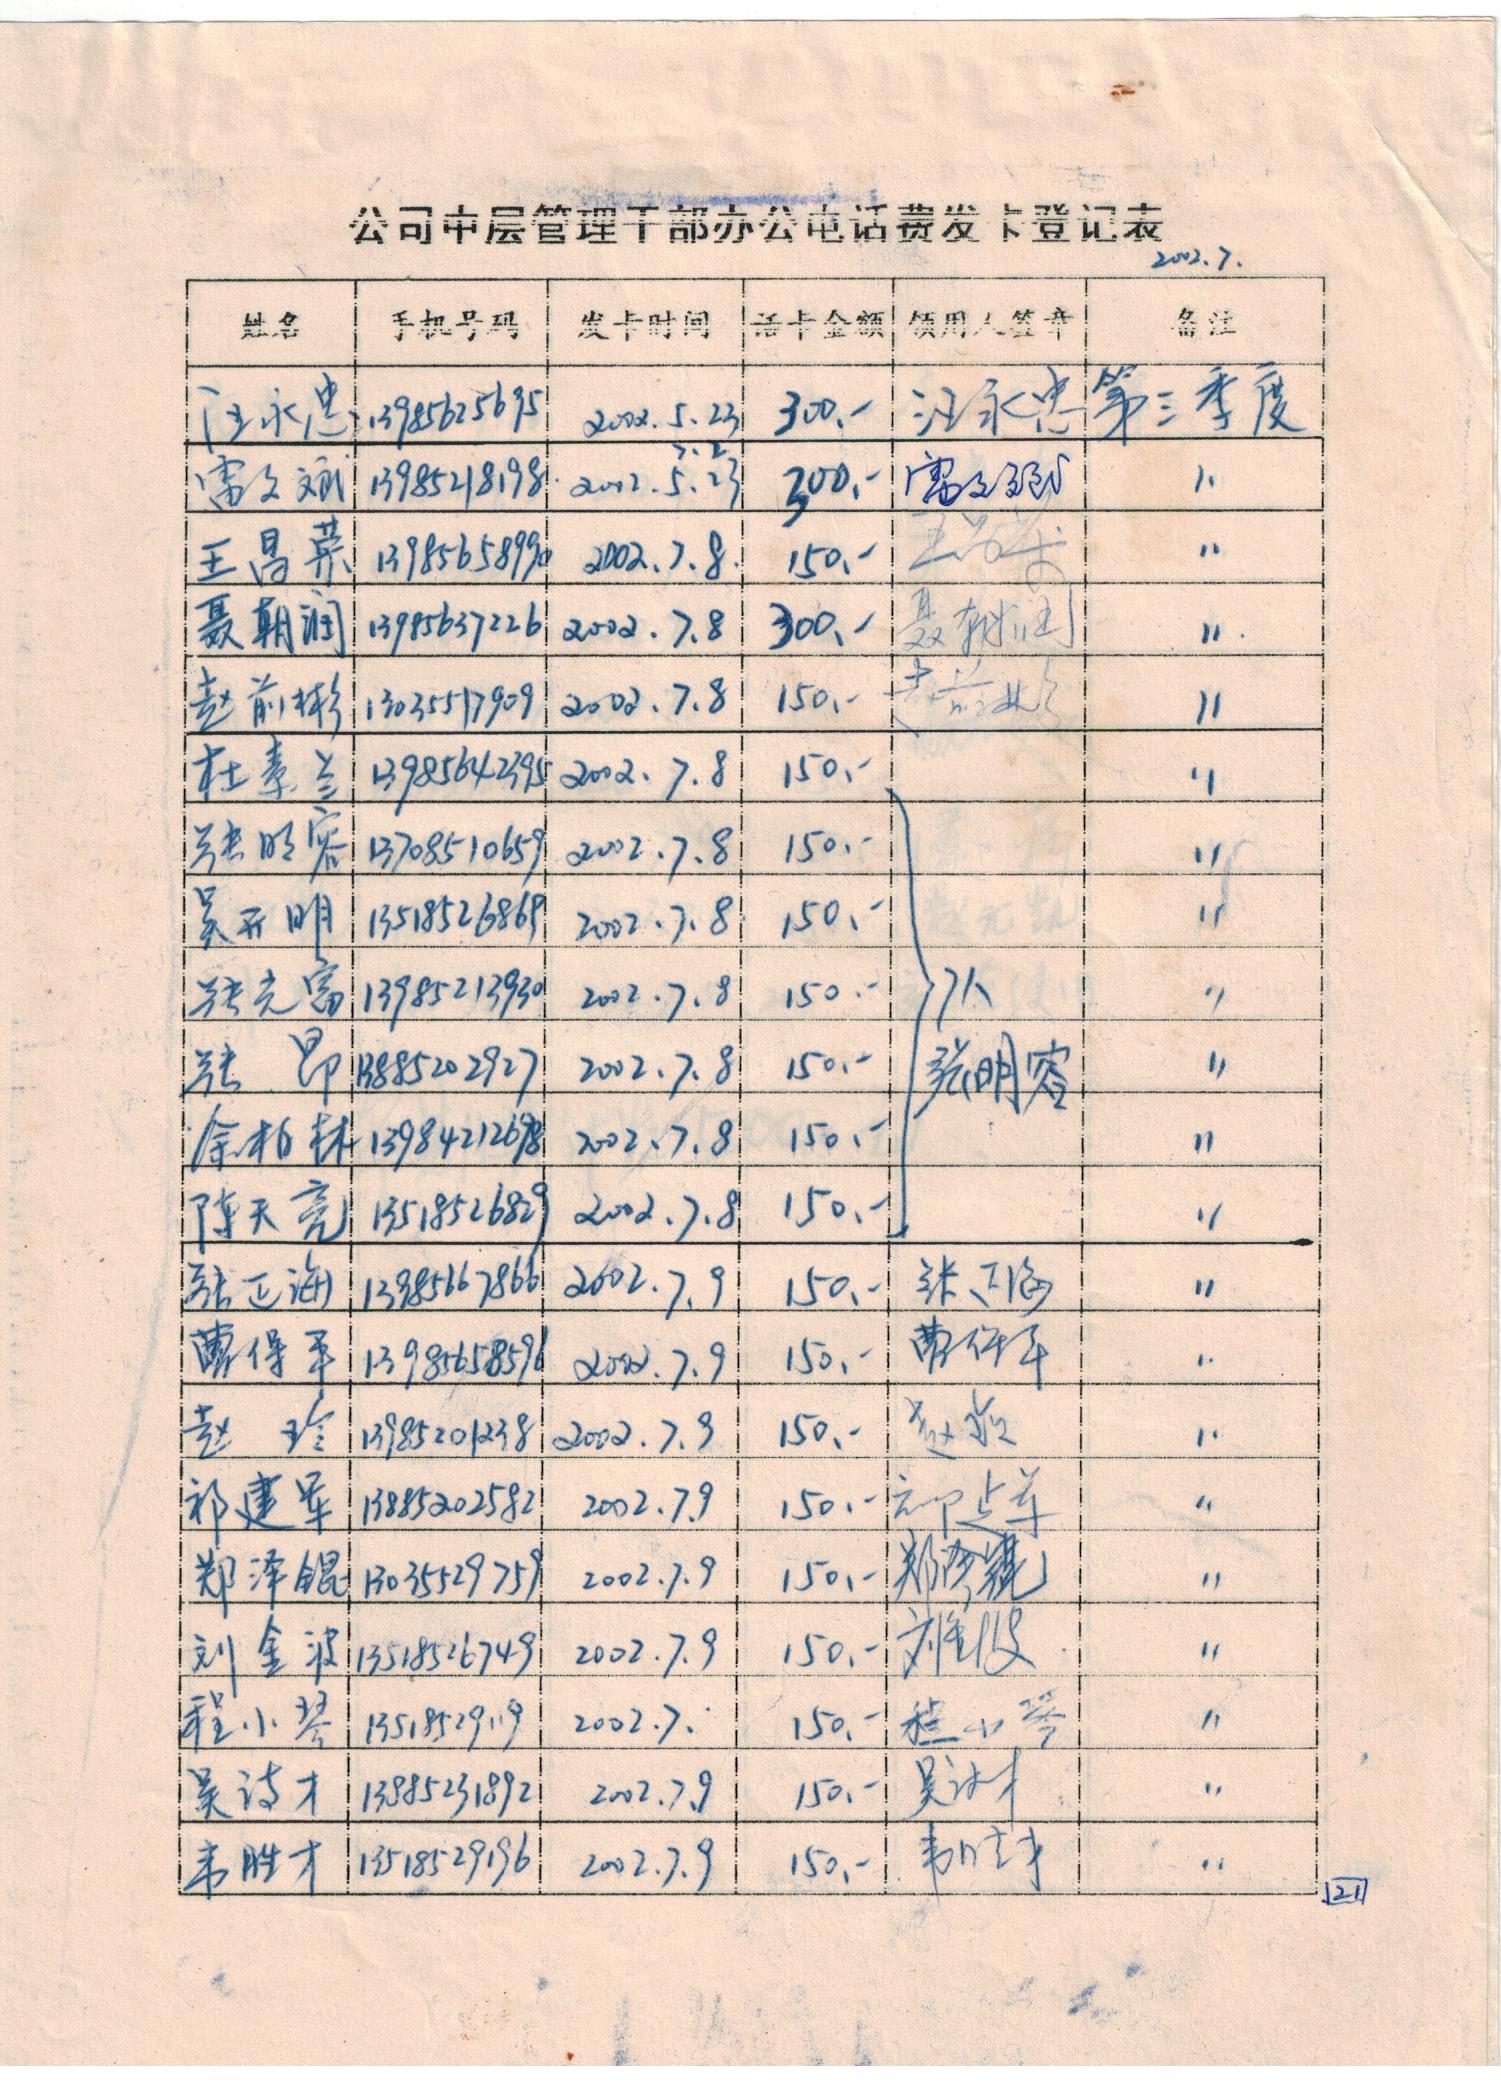 公司中层管理干部办公电话费发卡登记表
2002.7.
姓名 手机号码 发卡时间 话卡金额 领用人签章 备注
汪永忠 13985625695 2002.5.23 300.- 汪永忠 第三季度
雷文斌 13985218198 7.2 2002.5.23 300.- 雷文斌 〃
王昌荣 13985658990 2002.7.8. 150.- 王昌荣 〃
聂朝润 13985637226 2002.7.8 300.- 聂朝润 〃
赵前彬 13035517909 2002.7.8 150.- 赵前彬 〃
杜素兰 13985642395 2002.7.8 150.- 〃
张明容 13708510659 2002.7.8 150.- 〃
吴开明 13518526869 2002.7.8 150.- 〃
张克富 13985213930 2002.7.8 150.- 7人 〃
张昂 13885202927 2002.7.8 150.- 张明容 〃
涂柏林 13984212698 2002.7.8 150.- 〃
陈天亮 13518526829 2002.7.8 150.- 〃
张正海 13985667866 2002.7.9 150.- 张正海 〃
曹保平 13985658596 2002.7.9 150.- 曹保平 〃
赵玲 13985201238 2002.7.9 150.- 赵玲 〃
祁建军 13885202582 2002.7.9 150.- 祁建军 〃
郑泽锟 13035529759 2002.7.9 150.- 郑泽锟 〃
刘金波 13518526749 2002.7.9 150.- 刘金波 〃
程小琴 13518529119 2002.7. 150.- 程小琴 〃
吴诗才 13985231892 2002.7.9 150.- 吴诗才 〃
韦胜才 13518529196 2002.7.9 150.- 韦胜才 〃
21